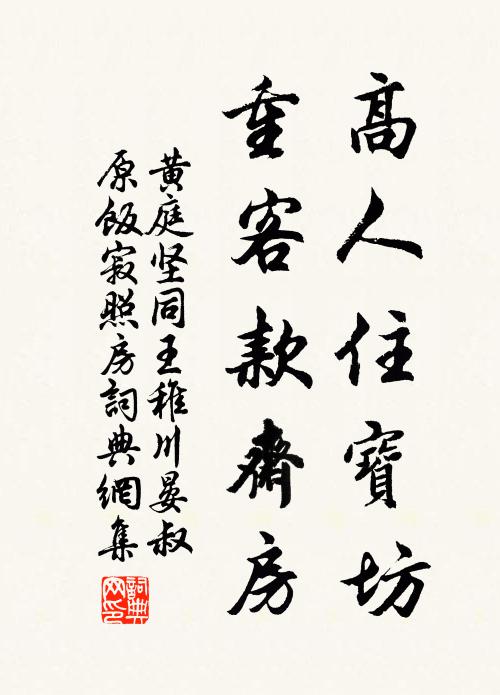 高人住寶坊
重客款齋房
黄庭坚同王稚川晏叔
原飯寂照房詞典網集
詞典網印